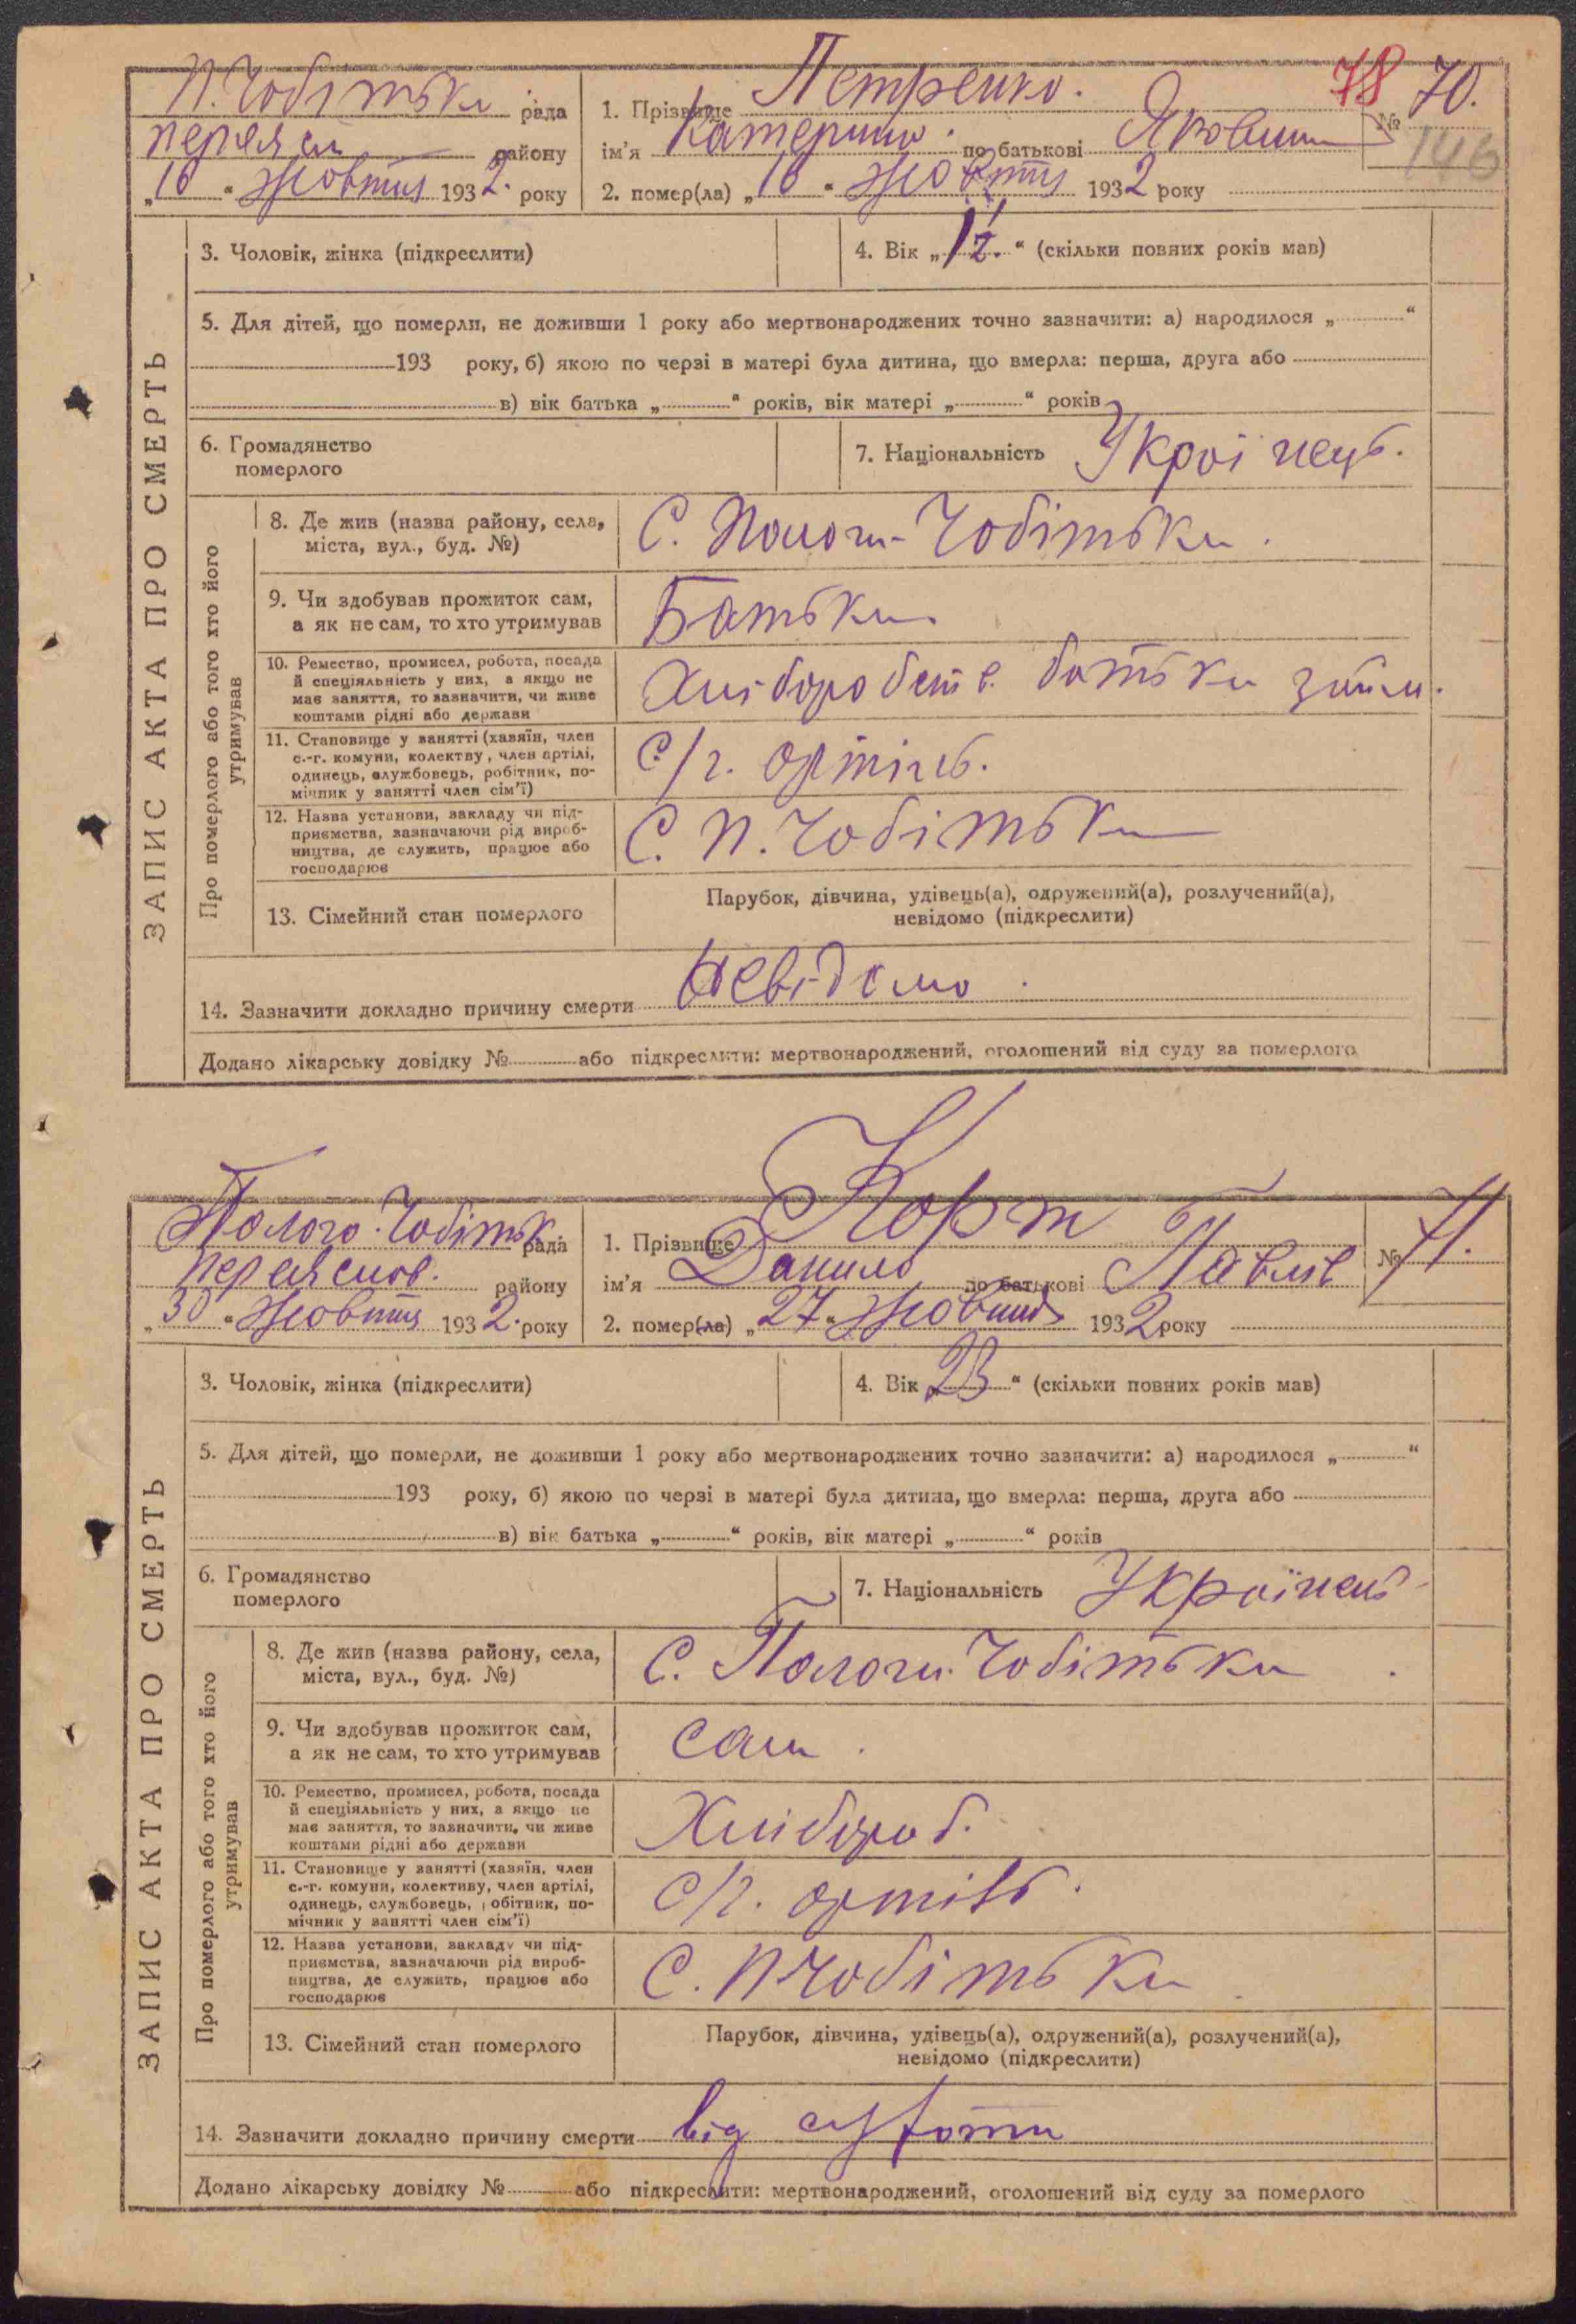 78 70.
П. Чобітьки рада 1. Прізвище Петренко. №
146
переясл району ім'я Катерина. по батькові Яковина
„16“ жовтня 1932. року 2. помер(ла) „16“ жовтня 1932 року
ЗАПИС АКТА ПРО СМЕРТЬ
3. Чоловік, жінка (підкреслити) 4. Вік „ “ (скільки повних років мав)
5. Для дітей, що померли, не доживши 1 року або мертвонароджених точно зазначити: а) народилося „ “
193 року, б) якою по черзі в матері була дитина, що вмерла: перша, друга або
в) вік батька „ “ років, вік матері „ “ років
6. Громадянство
померлого
7. Національність Українець.
Про померлого або того хто його
утримував
8. Де жив (назва району, села,
міста, вул., буд. №)
С. Пологи-Чобітьки.
9. Чи здобував прожиток сам,
а як не сам, то хто утримував
Батьки.
10. Ремество, промисел, робота, посада
й спеціяльність у них, а якщо не
має заняття, то зазначити, чи живе
коштами рідні або держави
Хлібороб батьки
11. Становище у занятті (хазяїн, член
с.-г. комуни, колектву, член артілі,
одинець, службовець, робітник, по-
мічник у занятті член сім'ї)
С/г. артіль.
12. Назва установи, закладу чи під-
приємства, зазначаючи рід вироб-
ництва, де служить, працює або
господарює
С. П. Чобітьки
13. Сімейний стан померлого
Парубок, дівчина, удівець(а), одружений(а), розлучений(а),
невідомо (підкреслити)
14. Зазначити докладно причину смерти Невідомо.
Додано лікарську довідку № або підкреслити: мертвонароджений, оголошений від суду за померлого
Полого-Чобітьк. рада 1. Прізвище Корт № 71.
Переяслов. району ім'я Данило по батькові Павлов
„30“ жовтня 1932. року 2. помер(ла) „27“ жовтня 1932 року
ЗАПИС АКТА ПРО СМЕРТЬ
3. Чоловік, жінка (підкреслити) 4. Вік „23“ (скільки повних років мав)
5. Для дітей, що померли, не доживши 1 року або мертвонароджених точно зазначити: а) народилося „ “
193 року, б) якою по черзі в матері була дитина, що вмерла: перша, друга або
в) вік батька „ “ років, вік матері „ “ років
6. Громадянство
померлого
7. Національність Українець
Про померлого або того хто його
утримував
8. Де жив (назва району, села,
міста, вул., буд. №)
С. Пологи-Чобітьки.
9. Чи здобував прожиток сам,
а як не сам, то хто утримував
Сам.
10. Ремество, промисел, робота, посада
й спеціяльність у них, а якщо не
має заняття, то зазначити, чи живе
коштами рідні або держави
Хлібороб.
11. Становище у занятті (хазяїн, член
с.-г. комуни, колективу, член артілі,
одинець, службовець, робітник, по-
мічник у занятті член сім'ї)
С/г. артіль.
12. Назва установи, закладу чи під-
приємства, зазначаючи рід вироб-
ництва, де служить, працює або
господарює
С. П Чобітьки
13. Сімейний стан померлого
Парубок, дівчина, удівець(а), одружений(а), розлучений(а),
невідомо (підкреслити)
14. Зазначити докладно причину смерти від сухоти
Додано лікарську довідку № або підкреслити: мертвонароджений, оголошений від суду за померлого